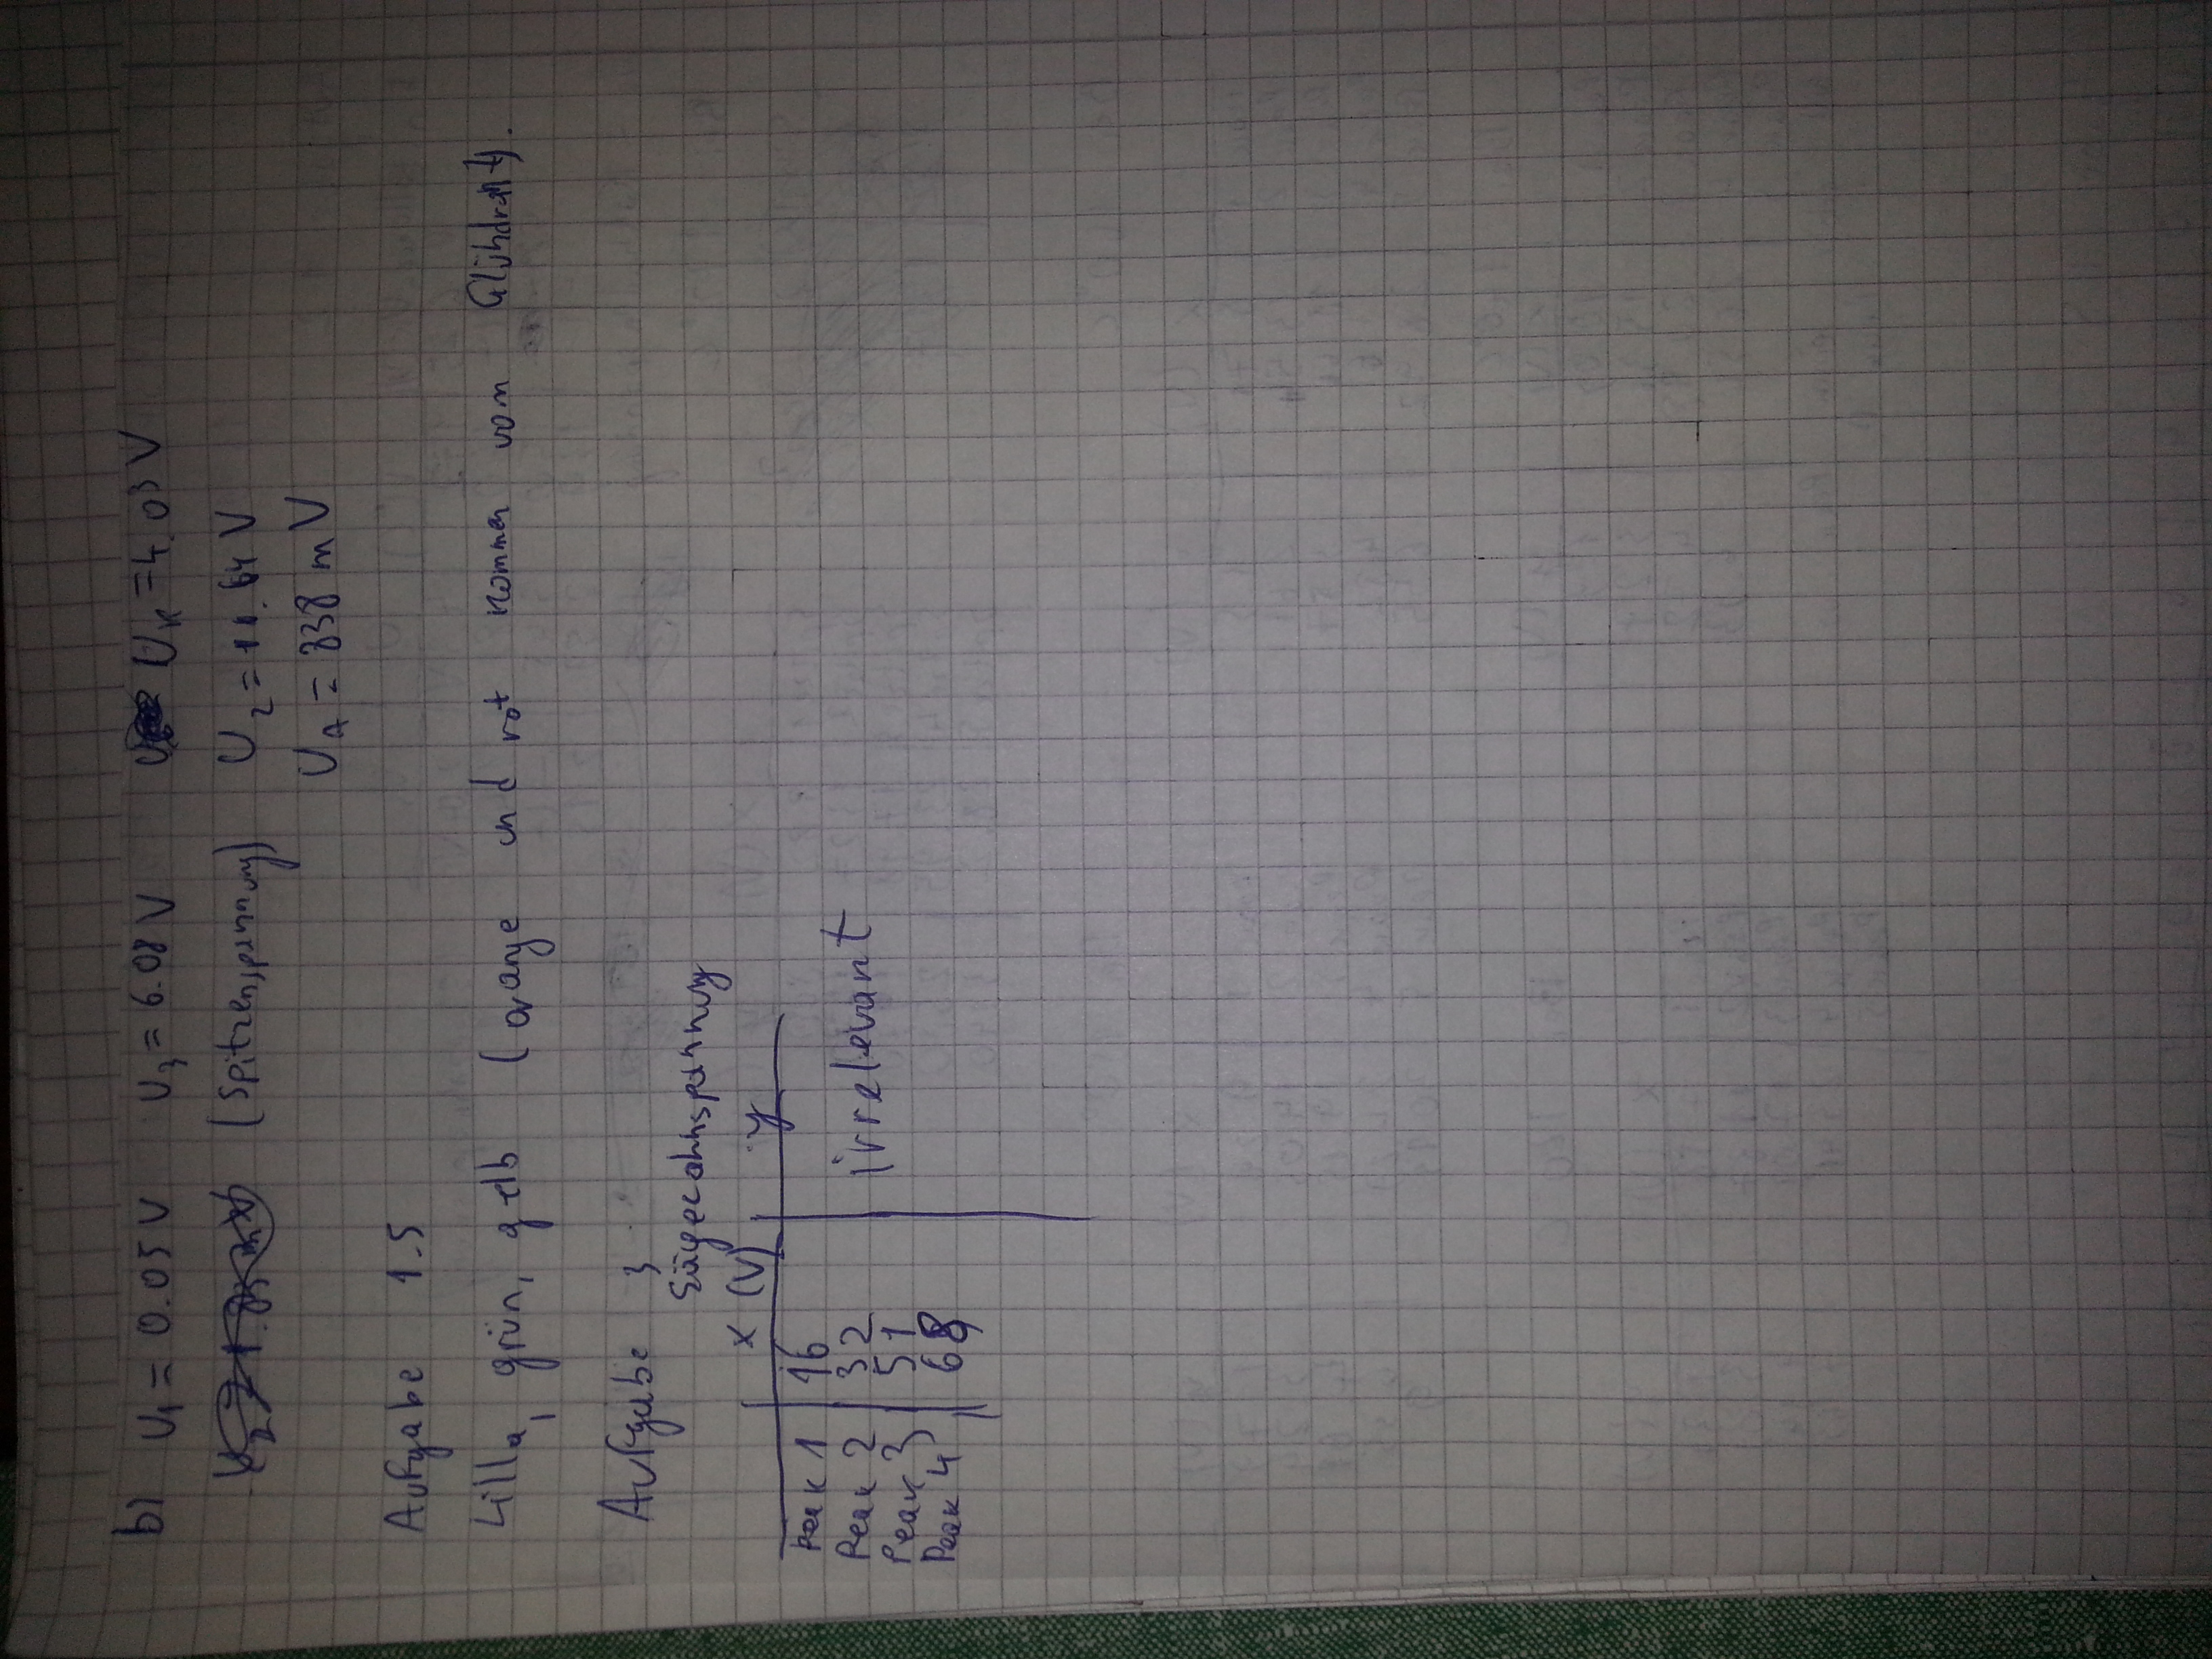 b) U₁ = 0.05 V U₃ = 6.08 V U_K = 4.03 V
(Spitzenspannung) U₂ = 11.64 V
U_A = 838 mV
Aufgabe 1.5
Lilla, grün, gelb (orange und rot kommen vom Glühdraht).
Aufgabe 3
Sägezahnspannung
x (V) y
Peak 1 16
Peak 2 32 irrelevant
Peak 3 51
Peak 4 68